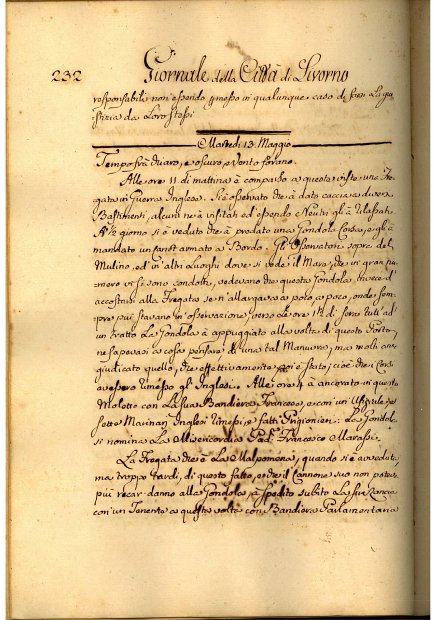 232 Giornale della Città di Livorno
responsabili non essendo permesso in qualunque caso di farsi La giu
stizia da Loro stessi
Martedì 13. Maggio
Tempo frà chiaro, e oscuro, e Vento forano.
Alle ore 11 di mattina à comparso a questa vista una Fre
gata in Guerra Inglese. Si è osservato che à dato caccia a diversi
Bastimenti, alcuni ne à visitati ed essendo Neutri gli à rilasciati
A ½ giorno si è veduto che à predato una Gondola Corsa, e gli à
mandato un armato a Bordo. Gli Osservatori sopra del
Mulino, ed in altri Luoghi dove si vede il Mare, che in gran nu
mero vi si sono condotti, vedevano che questa Gondola, invece d'
accostarsi alla Fregata se n'allargava a poco a poco, onde sem
pre più stavano in osservazione verso Le ore 1½ di sera tutt'ad
un tratto La Gondola à appoggiato alla volta di questo Porto,
ne sapevasi a cosa pensare di una tal Manuvra, ma molti àno
giudicato quello, che effettivamente poi è stato; cioè che i Corsi
avessero rimesso gl'Inglesi. Alle ore 4 à ancorato in questo
Molotto con La sua Bandiera Francese, e con un Uffiziale, e
sette Marinari Inglesi rimessi, e fatti Prigionieri: La Gondola
si nomina La Misericordia Pad: Francesco Marassi.
La Fregata che è La Malpomena, quando si è avveduta,
ma troppo tardi, di questo fatto, e che il Cannone suo non poteva
più recar danno alla Gondola, à spedito subito La sua Lancia
con un Tenente a questa volta con Bandiera Parlamentaria